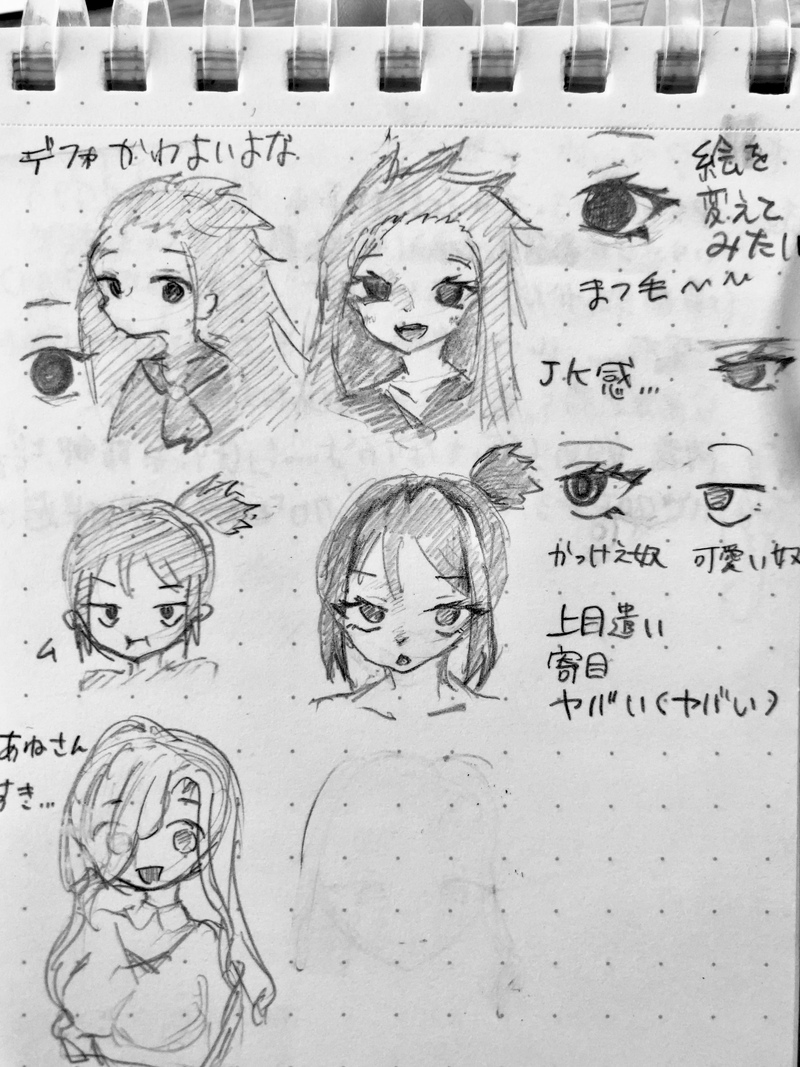 デフォかわよいよな
絵を
変えて
みたい
まつ毛〜〜
JK感...
かっけえ奴
可愛い奴
ム
上目遣い
寄目
ヤバい(ヤバい)
あねさん
すき...